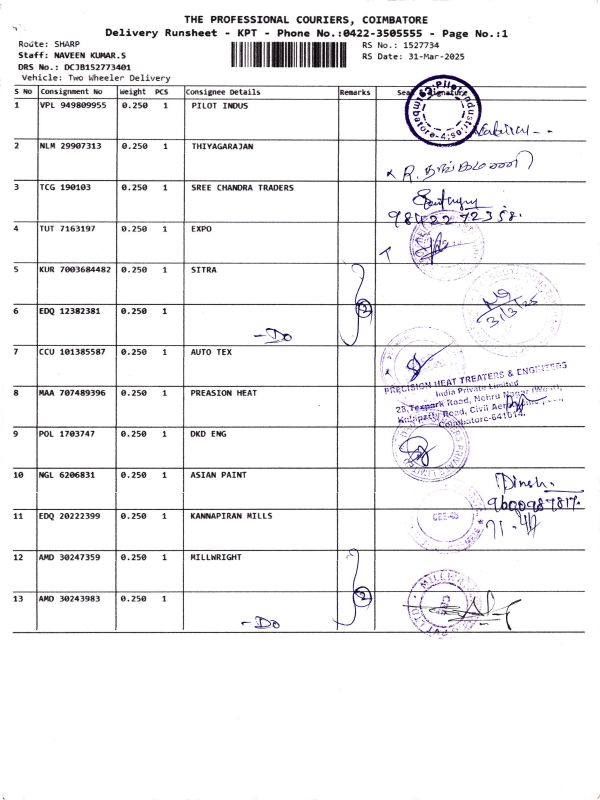 THE PROFESSIONAL COURIERS, COIMBATORE
Delivery Runsheet - KPT - Phone No.:0422-3505555 - Page No.:1
Route: SHARP
RS No.: 1527734
Staff: NAVEEN KUMAR.S
RS Date: 31-Mar-2025
DRS No.: DCJB152773401
Vehicle: Two Wheeler Delivery
S No Consignment No Weight PCS Consignee Details Remarks Seal Signature
1 VPL 949809955 0.250 1 PILOT INDUS
2 NLM 29907313 0.250 1 THIYAGARAJAN
R. தங்கமணி
3 TCG 190103 0.250 1 SREE CHANDRA TRADERS
98422 72358
4 TUT 7163197 0.250 1 EXPO
5 KUR 7003684482 0.250 1 SITRA
31/3/25
6 EDQ 12382381 0.250 1
2
-Do
7 CCU 101385587 0.250 1 AUTO TEX
PRECISION HEAT TREATERS & ENGINEERS
India Private Limited
8 MAA 707489396 0.250 1 PREASION HEAT
28, Texpark Road, Nehru Nagar (West),
Kalapatty Road, Civil Aerodrome
Coimbatore-641014.
9 POL 1703747 0.250 1 DKD ENG
10 NGL 6206831 0.250 1 ASIAN PAINT
Dinesh.
9600987817.
11 EDQ 20222399 0.250 1 KANNAPIRAN MILLS
CBE-48
12 AMD 30247359 0.250 1 MILLWRIGHT
2
13 AMD 30243983 0.250 1
-Do